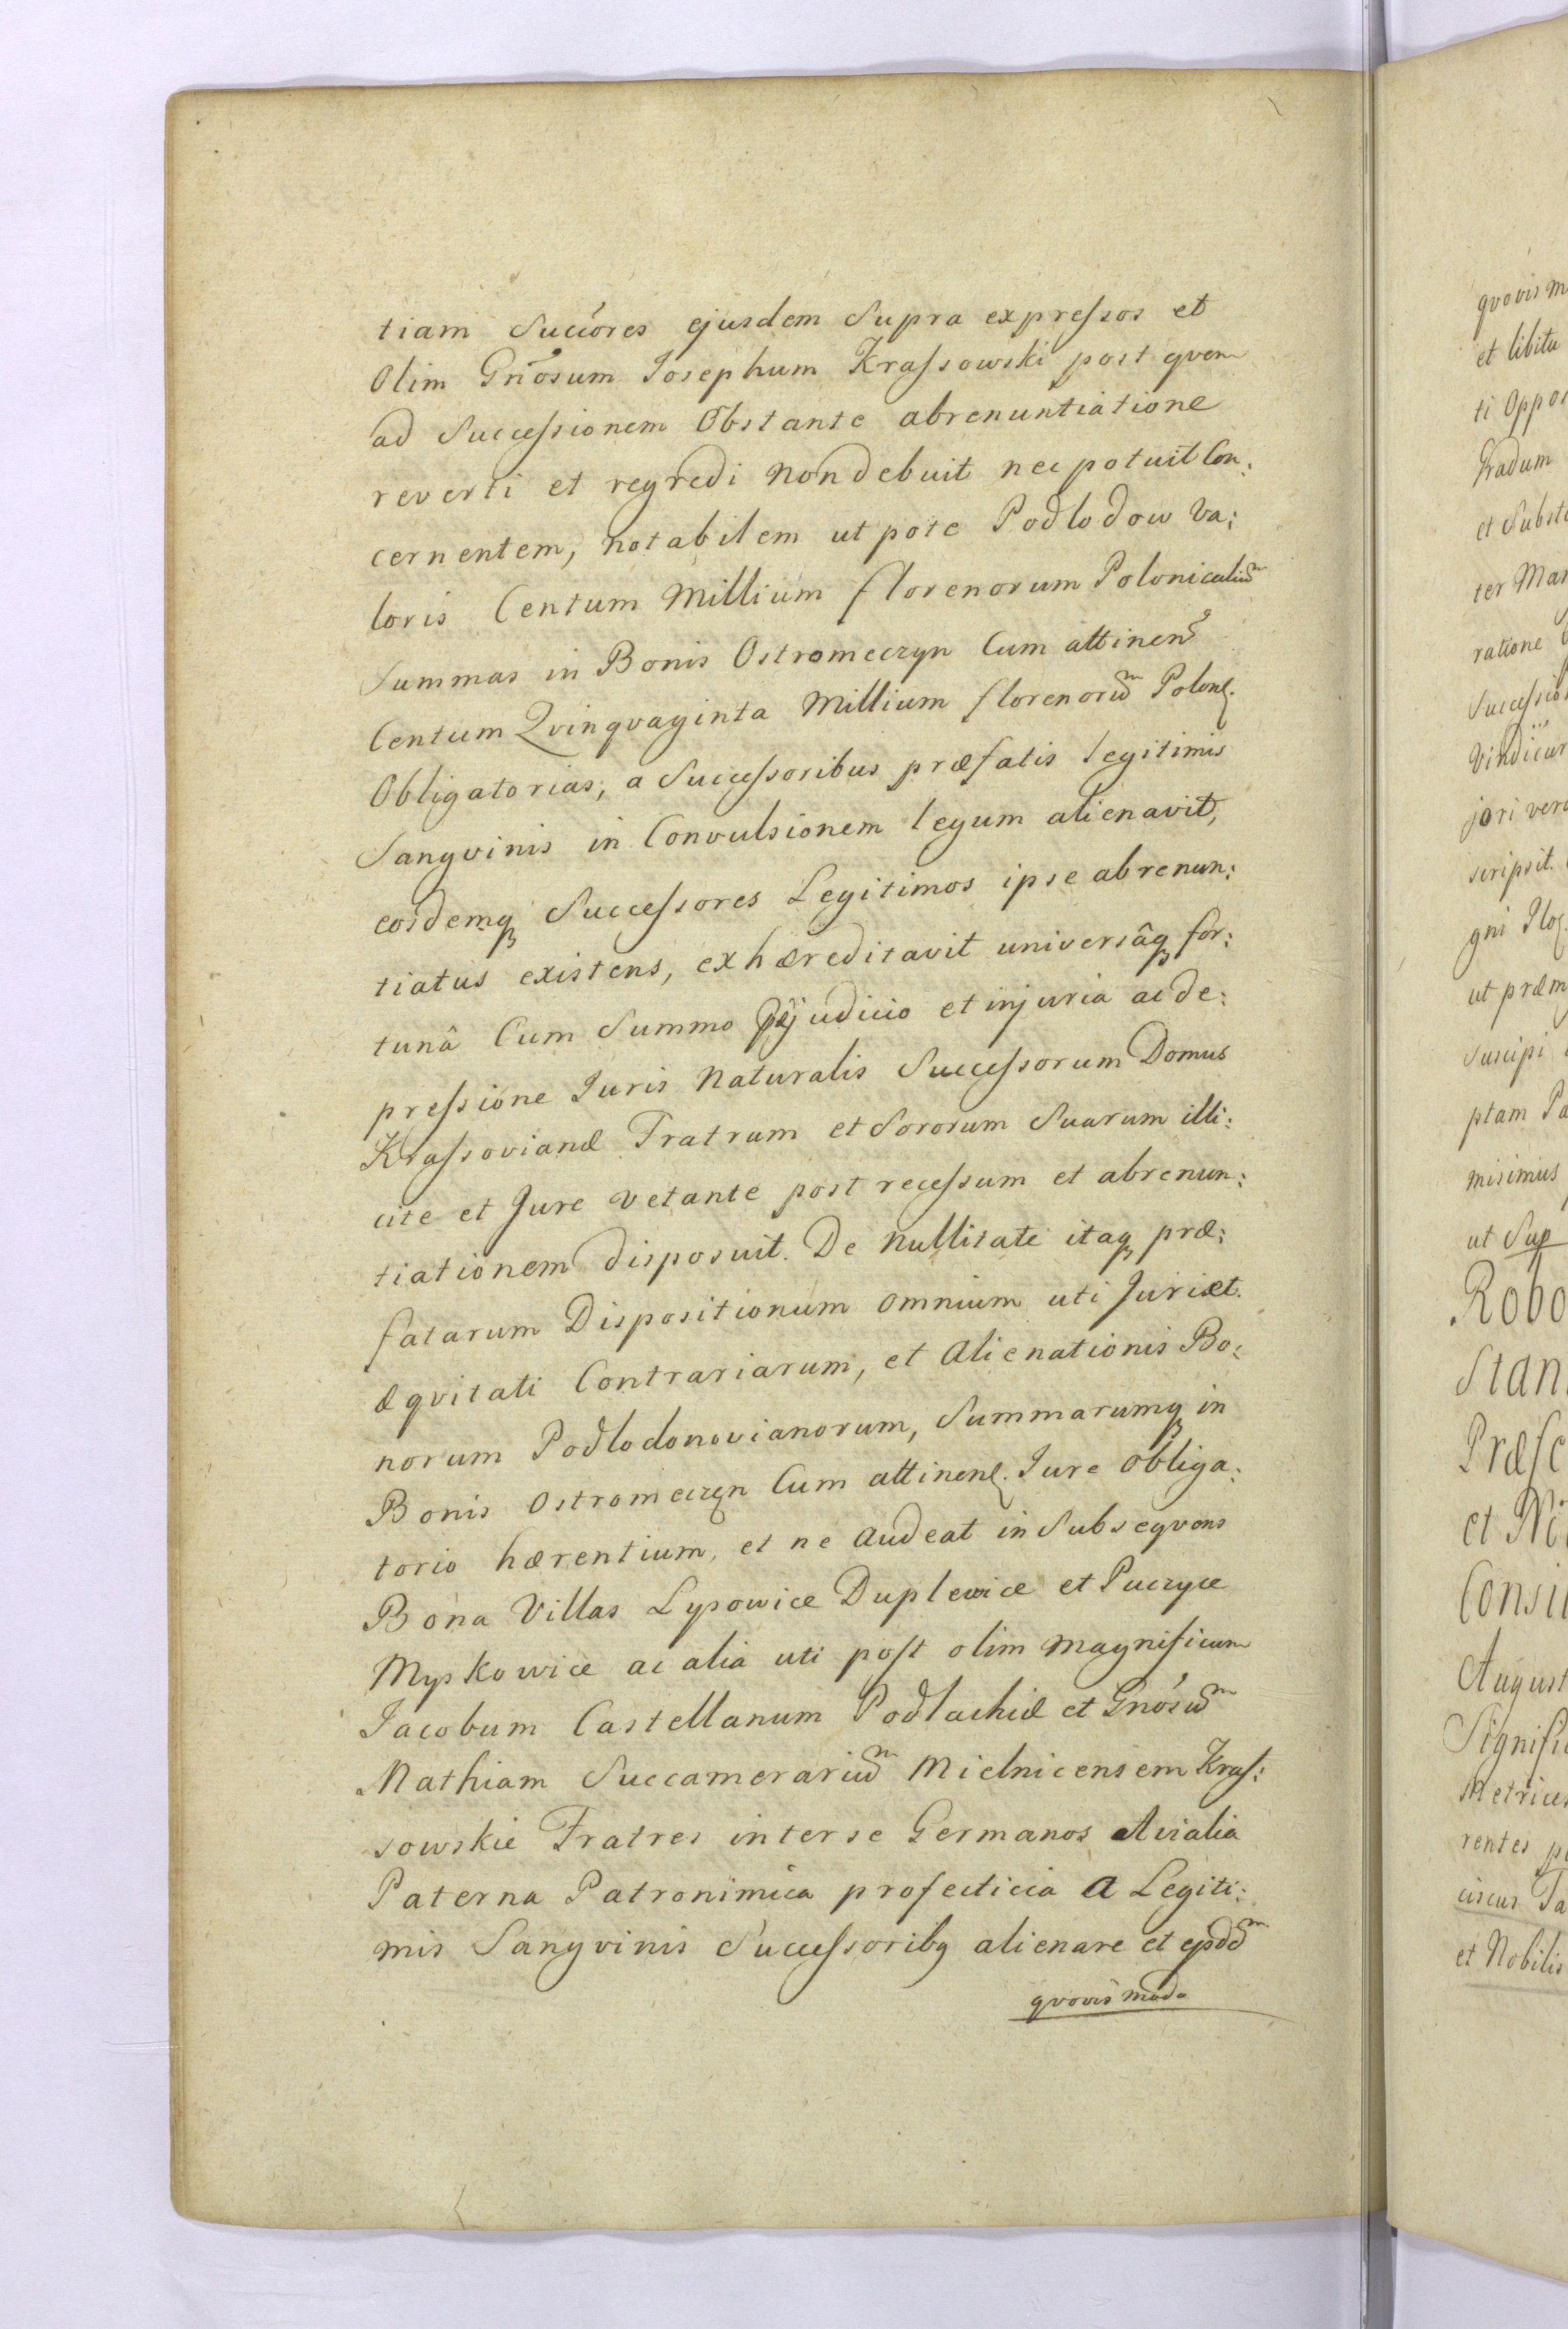 tiam Succ̄ores ejusdem Supra expreſsos et
Olim Gn̄osum Josephum Kraſsowski post qvem
ad Succeſsionem Obstante abrenuntiatione
reverti et regredi non debuit nec potuit Con:
cernentem, notabilem utpote Podlodow Va:
loris Centum Millium florenorum Polonicaliu͞m
Summas in Bonis Ostromeczyn Cum attinen
Centum Qvinqvaginta Millium florenoru͞m Polon.
Obligatorias, a Succeſsoribus præfatis legitimis
Sangvinis in Convulsionem legum alienavit,
eosdemq Succeſsores Legitimos ipse abrenun:
tiatus existens, exhæreditavit universâq for:
tunâ Cum Summo Pjudicio et injuria ac de:
preſsione Juris Naturalis Succeſsorum Domus
Kraſsovianæ Fratrum et Sororum Suarum illi:
cite et Jure vetante post receſsum et abrenun:
tiationem disposuit. De Nullitate itaq præ:
fatarum Dispositionum omnium uti Juri et
æqvitati Contrariarum, et Alienationis Bo:
norum Podlodonovianorum, Summarumq in
Bonis Ostromeczyn Cum attinen. Jure obliga:
torio hærentium, et ne audeat in Subseqvens
Bona Villas Lysowice Duplewice et Puczyce
Myskowice ac alia uti poſt olim Magnificum
Jacobum Castellanum Podlachiæ et Gn̄osu͞m
Mathiam Succamerariu͞m Mielnicensem Kraſ:
sowskie Fratres inter se Germanos Avialia
Paterna Patronimica profecticia a Legiti:
mis Sangvinis Succeſsorib9 alienare et
qvovis modo
qvovis m
et libitu
ti Oppo
Gradum
et Subst
ter Mar
ratione
Succeſsio
Vindicar
jori vero
scripsit.
gni
ut præm
Suscipi
ptam Pa
misimus
ut Sup
Robo
Stan
Præfe
et Ni
Consi
August
Signifi
Metrices
rentes
ciscus
et Nobilis